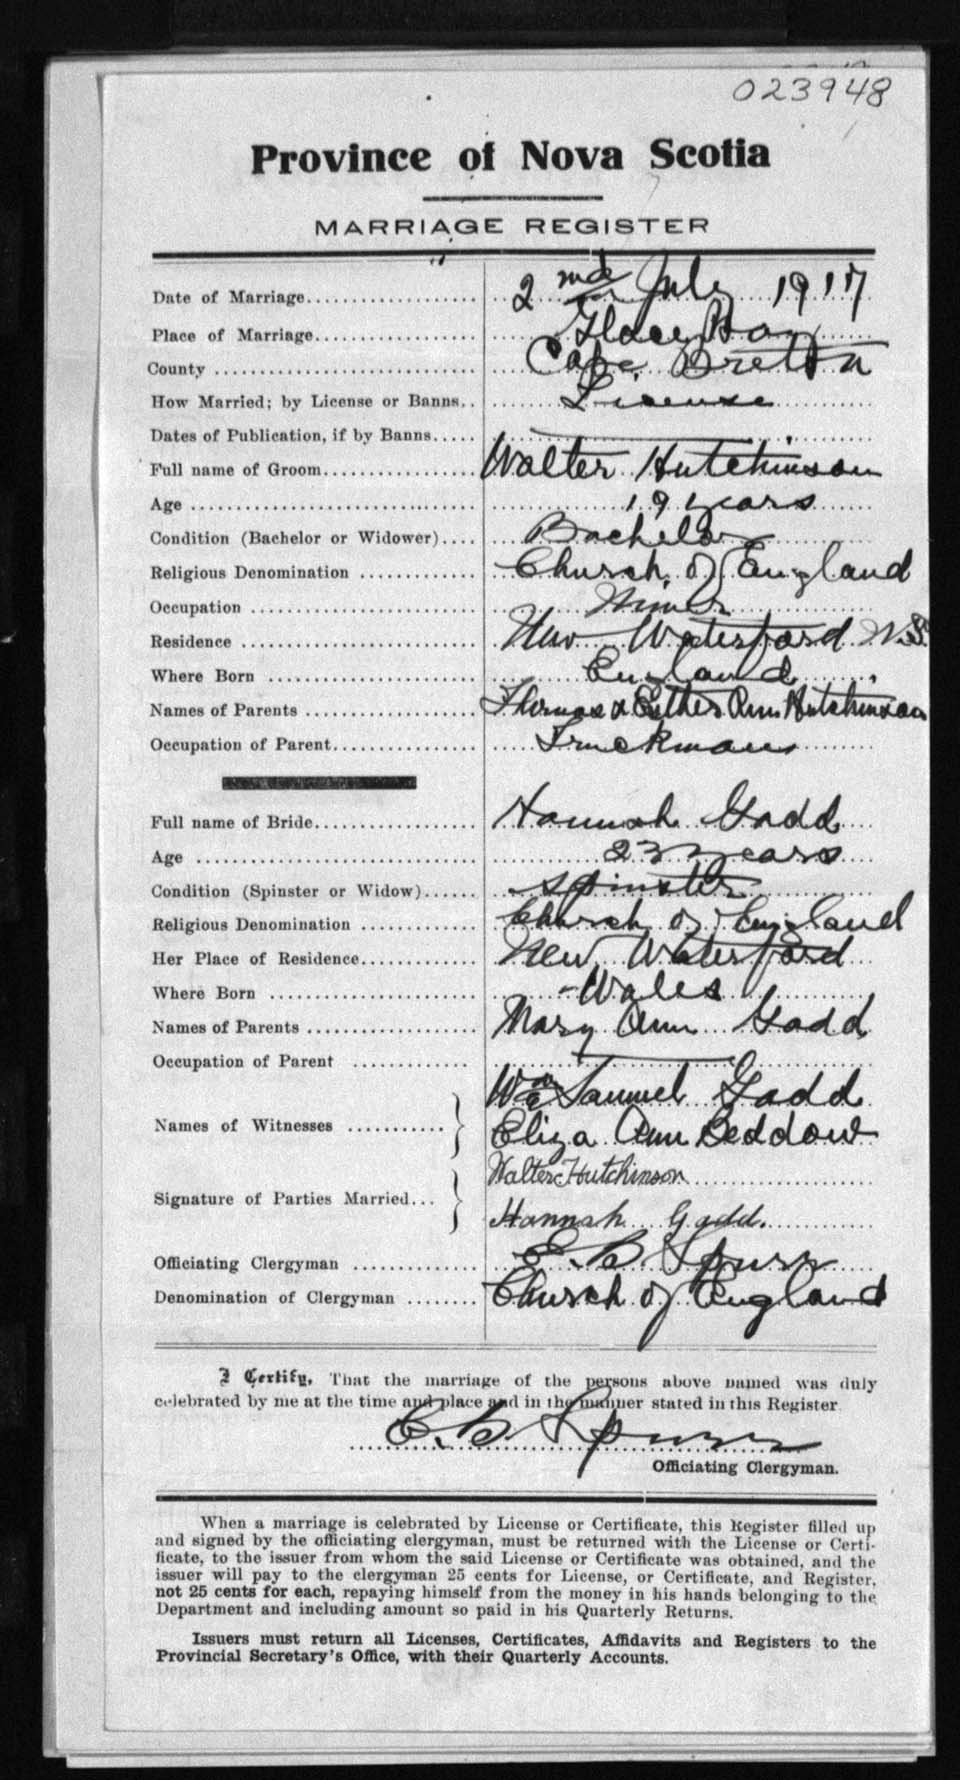 023948
Province of Nova Scotia
MARRIAGE REGISTER
Date of Marriage 2nd July 1917
Place of Marriage Glace Bay
County Cape Bretton
How Married; by License or Banns License
Dates of Publication, if by Banns
Full name of Groom Walter Hutchinson
Age 19 years
Condition (Bachelor or Widower) Bachelor
Religious Denomination Church of England
Occupation Miner
Residence New Waterford N.S.
Where Born England
Names of Parents Thomas & Esther Ann Hutchinson
Occupation of Parent Truckman
Full name of Bride Hannah Gadd
Age 23 years
Condition (Spinster or Widow) Spinster
Religious Denomination Church of England
Her Place of Residence New Waterford
Where Born Wales
Names of Parents Mary Ann Gadd
Occupation of Parent
Wm Samuel Gadd
Names of Witnesses Eliza Ann Beddow
Walter Hutchinson
Signature of Parties Married Hannah Gadd.
Officiating Clergyman E. B. Spurr
Denomination of Clergyman Church of England
I Certify, That the marriage of the persons above named was duly
celebrated by me at the time and place and in the manner stated in this Register
E. B. Spurr
Officiating Clergyman.
When a marriage is celebrated by License or Certificate, this Register filled up
and signed by the officiating clergyman, must be returned with the License or Certi-
ficate, to the issuer from whom the said License or Certificate was obtained, and the
issuer will pay to the clergyman 25 cents for License, or Certificate, and Register,
not 25 cents for each, repaying himself from the money in his hands belonging to the
Department and including amount so paid in his Quarterly Returns.
Issuers must return all Licenses, Certificates, Affidavits and Registers to the
Provincial Secretary's Office, with their Quarterly Accounts.